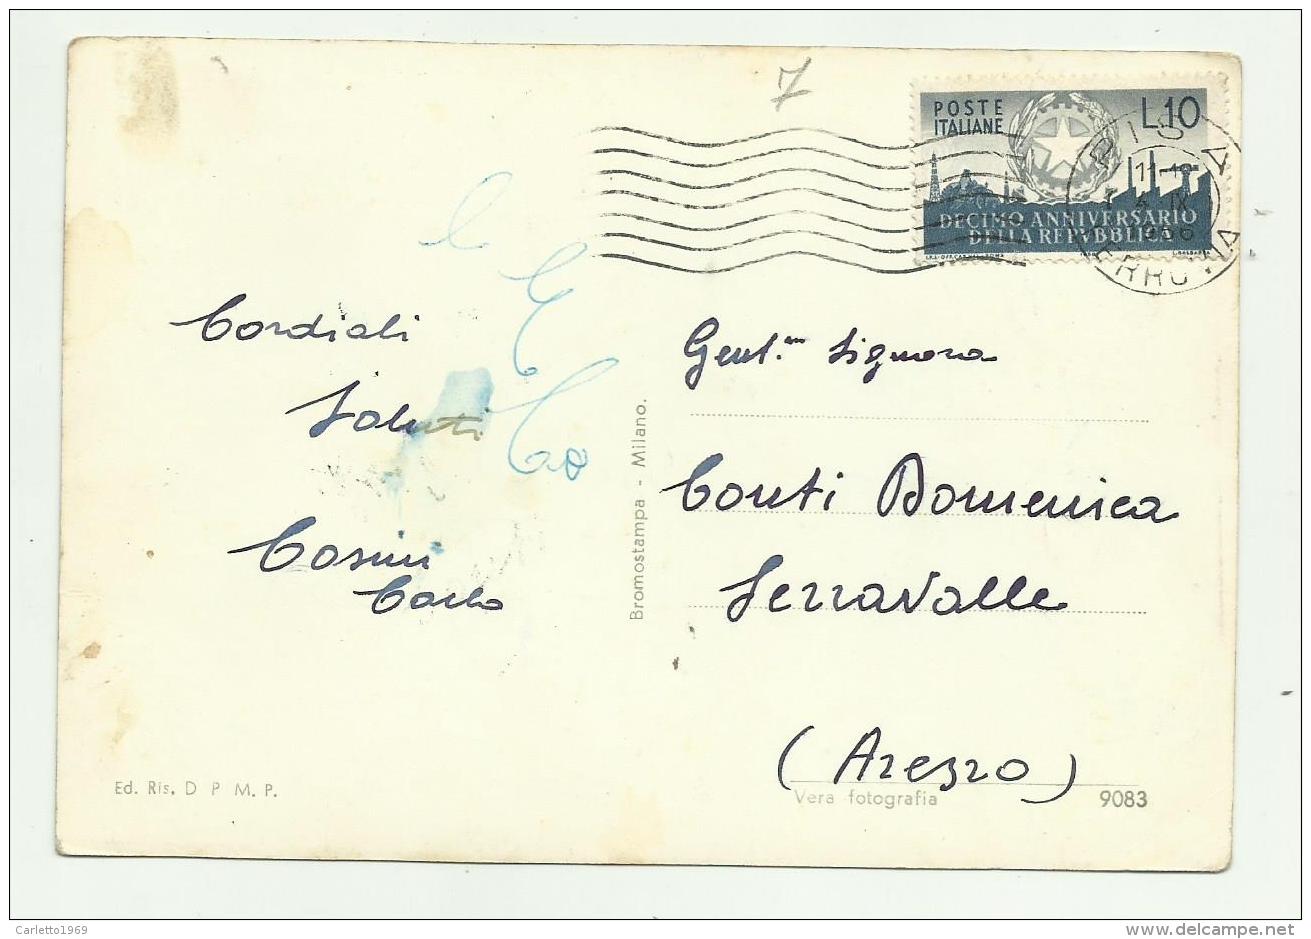 7
POSTE
ITALIANE
L.10
DECIMO ANNIVERSARIO
DELLA REPVBBLICA
PISA
FERROVIA
Cordiali
Saluti
Cosimi
Carlo
Gent.ma Signora
Conti Domenica
Serravalle
(Arezzo)
Bromostampa - Milano.
Ed. Ris. D P M. P.
Vera fotografia
9083
Carletto1969
www.delcampe.net